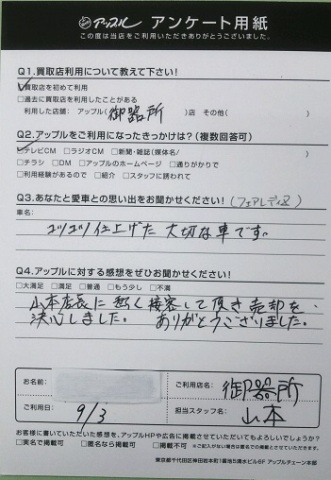 アップル アンケート用紙
この度は当店をご利用いただきありがとうございました。
Q1.買取店利用について教えて下さい!
□買取店を初めて利用
□過去に買取店を利用したことがある
利用した店舗: アップル( 御器所 )店 その他( )
Q2.アップルをご利用になったきっかけは?(複数回答可)
□テレビCM □ラジオCM □新聞・雑誌(媒体名/ )
□チラシ □DM □アップルのホームページ □通りがかりで
□利用経験があるので □紹介 □スタッフに誘われて
Q3.あなたと愛車との思い出をお聞かせください!(フェアレディZ)
車名:
コツコツ仕上げた 大切な車です。
Q4.アップルに対する感想をぜひお聞かせください!
□大満足 □満足 □普通 □もう少し □不満
山本店長に熱く接客して頂き売却を
決心しました。 ありがとうございました。
お名前:
ご利用店名: 御器所
ご利用日: 9/3
担当スタッフ名: 山本
お客様に書いていただいた感想を、アップルHPや広告に掲載させていただいてもよろしいでしょうか?
□実名で掲載可 □匿名なら掲載可 □掲載不可
東京都千代田区神田岩本町1番地5清水ビル6F アップルチェーン本部